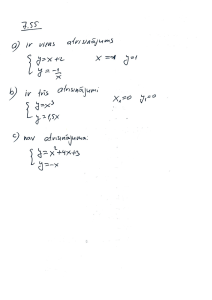 7.55.
a) ir viens atrisinājums
{ y = x + 2   x = -1   y = 1
y = -1/x
b) ir trīs atrisinājumi
{ y = x³   x₁ = 0   y₁ = 0
y = 1,5x
c) nav atrisinājuma
{ y = x² + 4x + 3
y = -x